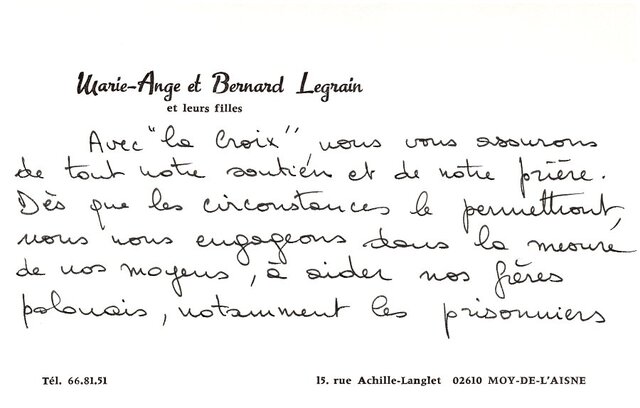 Marie-Ange et Bernard Legrain
et leurs filles
Avec "la Croix" nous vous assurons
de tout notre soutien et de notre prière.
Dès que les circonstances le permettront,
nous nous engageons dans la mesure
de nos moyens, à aider nos frères
polonais, notamment les prisonniers
Tél. 66.81.51 15. rue Achille-Langlet 02610 MOY-DE-L'AISNE